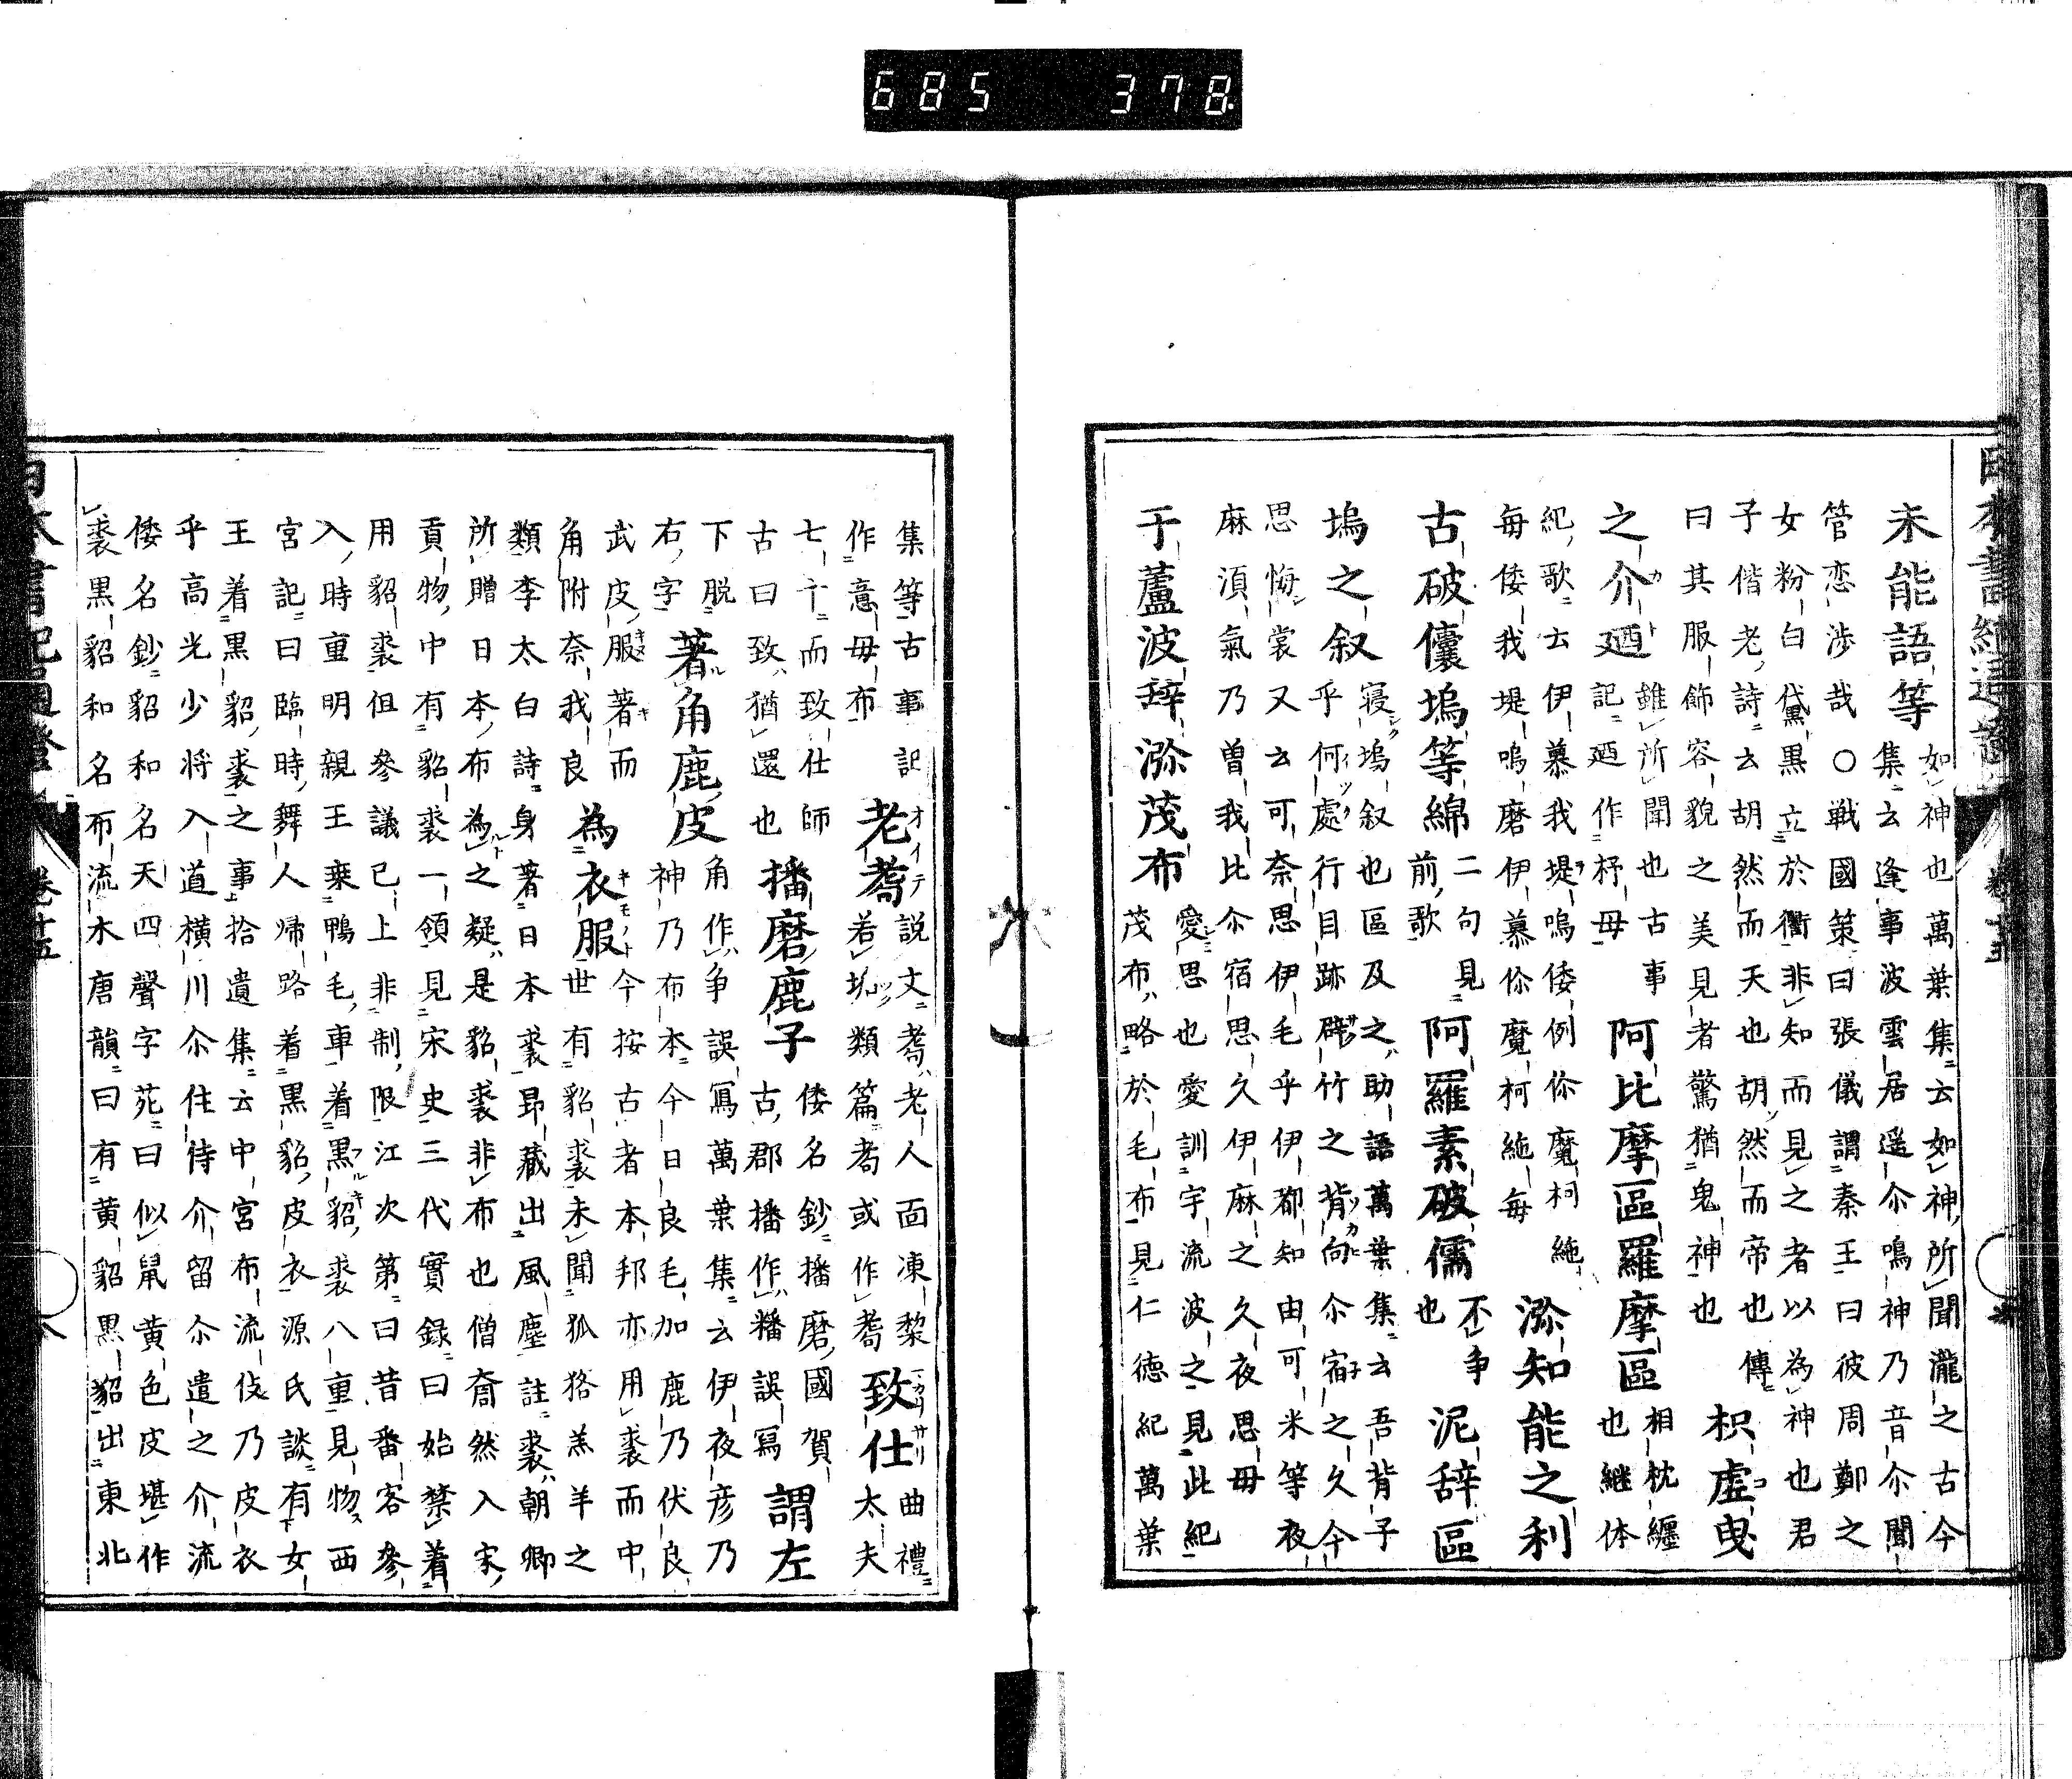 685 378
未能語等
如神也萬葉集云如神所聞瀧之古今
集云逢事波雲居遥尒鳴神乃音尒聞
管恋渉哉〇戦國策曰張儀謂秦王曰彼周鄭之
女粉白黛黒立於衢非知而見之者以為神也君
子偕老詩云胡然而天也胡然而帝也傳
曰其服飾容貌之美見者驚猶鬼神也
枳虚曳
之介廼
雖所聞也古事
記廼作杼毋
阿比摩區羅摩區
相枕纏
也継体
紀歌云伊慕我堤嗚倭例伱魔柯絁
毎倭我堤嗚磨伊慕伱魔柯絁毎
泺知能之利
古破儾塢等綿
二句見
前歌
阿羅素破儒
不争
也
泥辞區
塢之叙
寝塢叙也區及之助語萬葉集云吾背子
乎何處行目跡辟竹之背向尒宿之久今
思悔裳又云可奈思伊毛乎伊都知由可米等夜
麻湏氣乃曽我比尒宿思久伊麻之久夜思毋
于蘆波辞泺茂布
愛思也愛訓宇流波之見此紀
茂布略於毛布見仁徳紀萬葉
集等古事記
老耆
オイテ
説文耆老人面凍黎
作意毋布
若坸類篇耈或作耆
致仕
カリサリ
曲禮
太夫
七十而致仕師
古曰致猶還也
播磨鹿子
倭名鈔播磨國賀
古郡播作䊩誤寫
謂左
下脱
右字
著角鹿皮
角作争誤寫萬葉集云伊夜彦乃
神乃布本今日良毛加鹿乃伏良
武皮服著而
角附奈我良
為衣服
キモノト
今按古者本邦亦用裘而中
世有貂裘未聞狐狢羔羊之
類李太白詩身著日本裘昻藏出風塵註裘朝卿
所贈日本布為之疑是貂裘非布也僧奝然入宋
貢物中有貂裘一領見宋史三代實録曰始禁着
用貂裘但參議已上非制限江次第曰昔番客參
入時重明親王乗鴨毛車着黒貂裘八重見物西
宮記曰臨時舞人帰路着黒貂皮衣源氏談有女
王着黒貂裘之事拾遺集云中宮布流伎乃皮衣
乎高光少将入道横川尒住侍介留尒遣之介流
倭名鈔貂和名天四聲字苑曰似鼠黄色皮堪作
裘黒貂和名布流木唐韻曰有黄貂黒貂出東北
卷十五